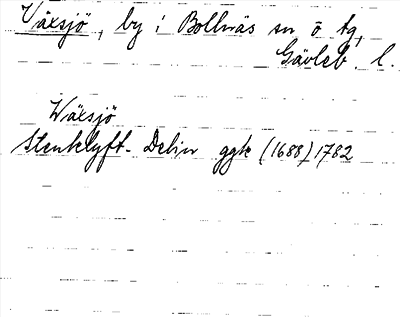 Växsjö, by i Bollnäs sn o tg,
Gävleb. l.
Wäxsjö
Stenklyft- Delin ggk (1688) 1782